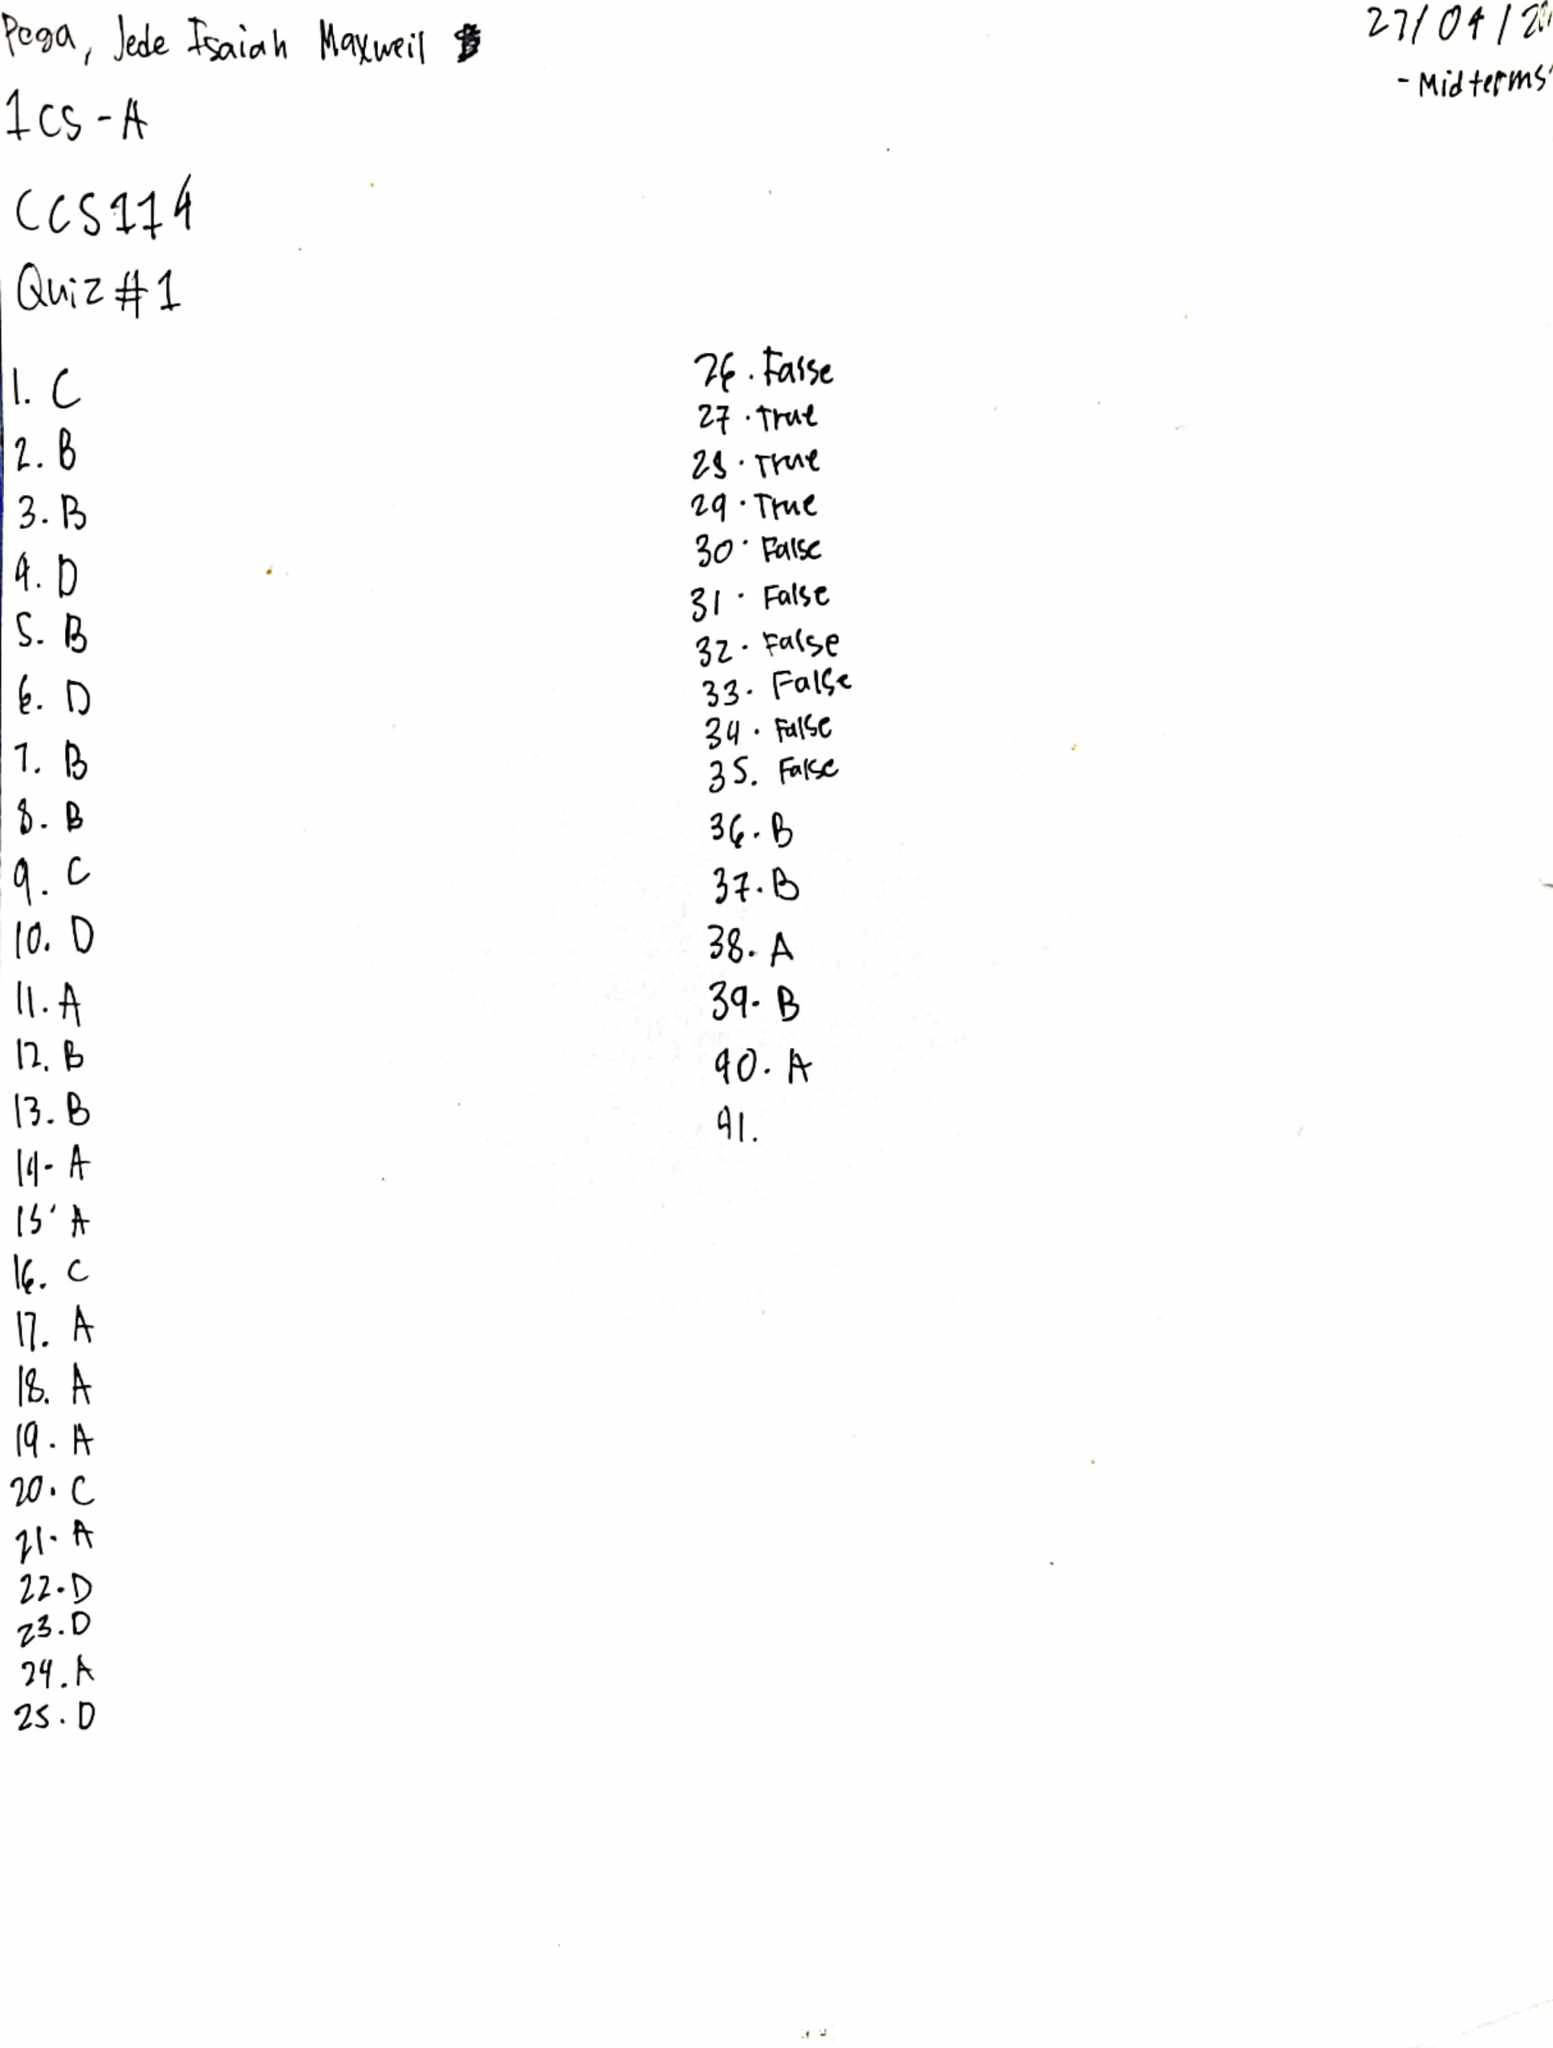 Pega, Jede Isaiah Maxweil
27/04/20
-Midterms
1CS-A
CCS114
Quiz#1
1. C
2. B
3. B
4. D
5. B
6. D
7. B
8. B
9. C
10. D
11. A
12. B
13. B
14. A
15. A
16. C
17. A
18. A
19. A
20. C
21. A
22. D
23. D
24. A
25. D
26. False
27. True
28. True
29. True
30. False
31. False
32. False
33. False
34. False
35. False
36. B
37. B
38. A
39. B
40. A
41.